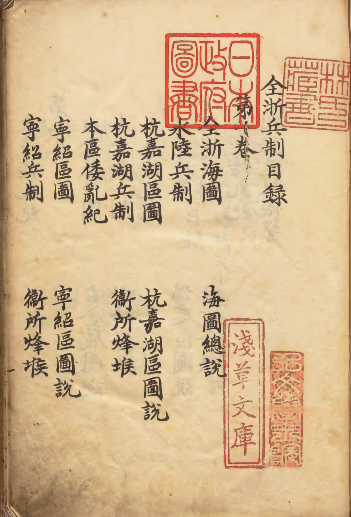 全浙兵制目録
第一卷
全浙海圖　海圖總說
水陸兵制
杭嘉湖區圖　杭嘉湖區圖說
杭嘉湖兵制　衞所烽堠
本區倭亂紀
寧紹區圖　寧紹區圖說
寧紹兵制　衞所烽堠
日本
政府
圖書
淺草文庫